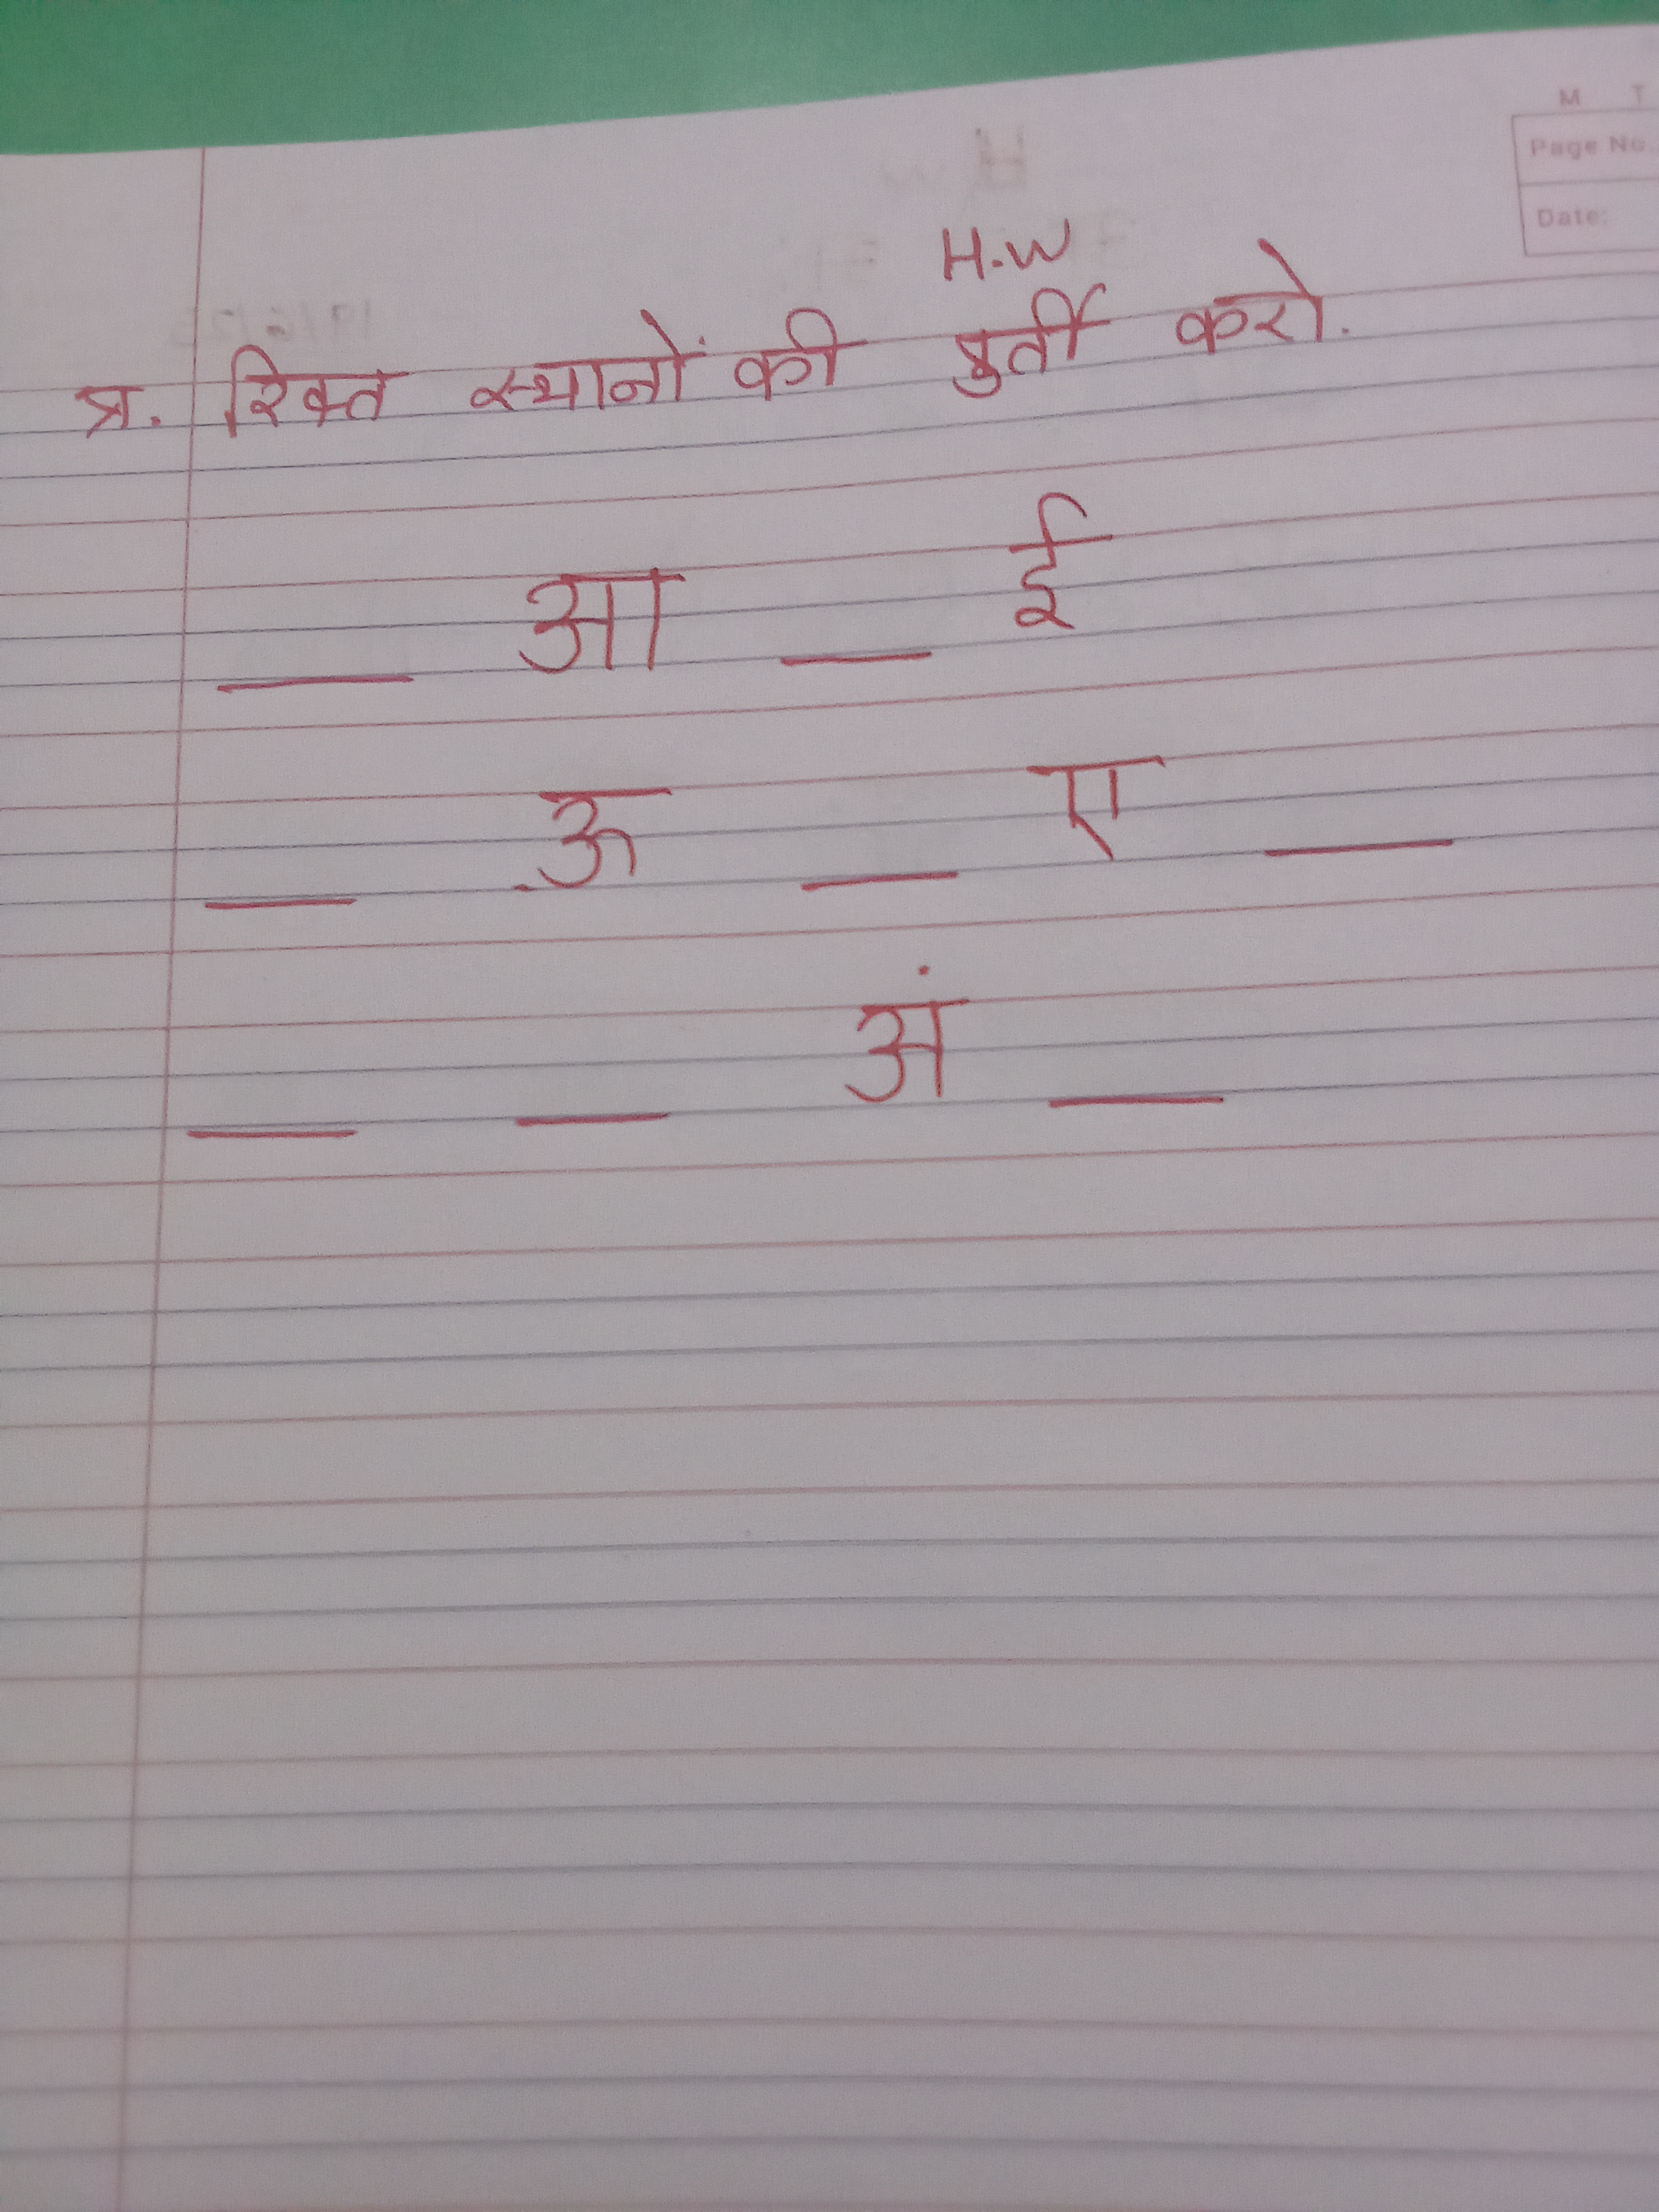 M T
Page No.
Date:
H.W
प्र. रिक्त स्थानों की पुर्ती करो.
__ आ __ ई
__ ऊ __ ए __
__ __ अं __